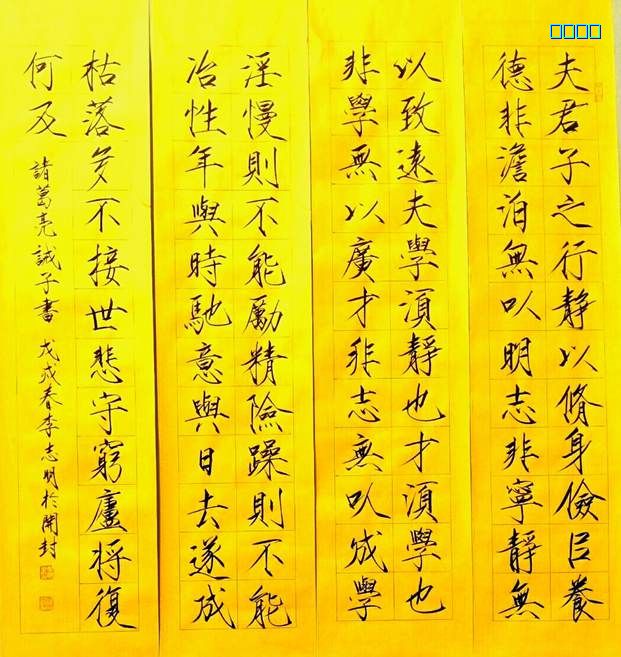 夫君子之行靜以脩身儉㠯養
德非澹泊無以明志非寧靜無
以致遠夫學須靜也才須學也
非學無以廣才非志無以成學
淫慢則不能勵精險躁則不能
冶性年與時馳意與日去遂成
枯落多不接世悲守窮廬將復
何及
諸葛亮誡子書 戊戌春李志明於開封